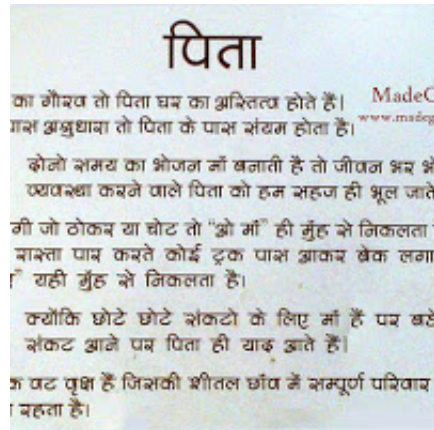 पिता
का गौरव तो पिता घर का अस्तित्व होते हैं।
अश्रुधारा तो पिता के पास संयम होता है।
दोनो समय का भोजन माँ बनाती है तो जीवन भर
व्यवस्था करने वाले पिता को हम सहज ही भूल जाते
जो ठोकर या चोट तो "ओ माँ" ही मुँह से निकलता
रास्ता पार करते कोई ट्रक पास आकर ब्रेक लगा
" यही मुँह से निकलता है।
क्योंकि छोटे छोटे संकटो के लिए माँ है पर
संकट आने पर पिता ही याद आते हैं।
वट वृक्ष हैं जिसकी शीतल छाँव में सम्पूर्ण परिवार
रहता है।